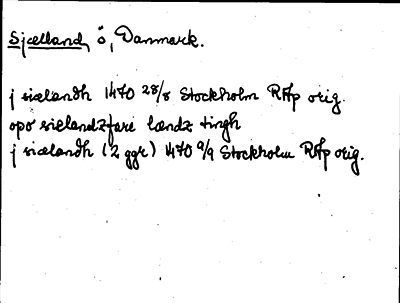 Sjælland, ö, Danmark.
j siælandh 1470 28/8 Stockholm RAp orig.
opo siælandzfare landz tingh
j siælandh (2 ggr) 1470 9/9 Stockholm RAp orig.